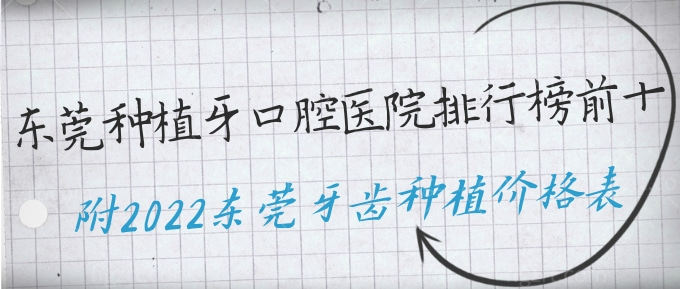 东莞种植牙口腔医院排行榜前十
附2022东莞牙齿种植价格表